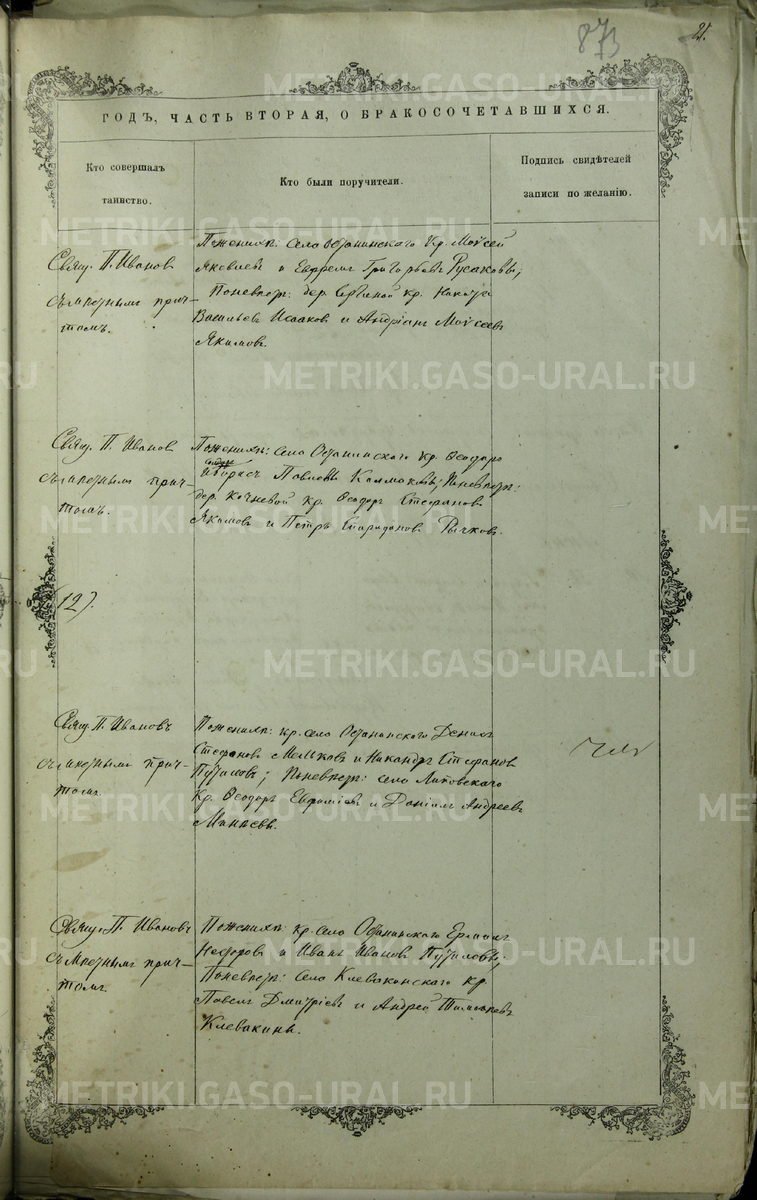 873
21.
METRIKI.GASO-URAL.RU
ГОДЪ, ЧАСТЬ ВТОРАЯ, О БРАКОСОЧЕТАВШИХСЯ.
Кто совершалъ
таинство.
Кто были поручители.
Подпись свидѣтелей
записи по желанію.
Свящ. П. Ивановъ
съ местнымъ прич-
томъ.
По женихѣ: села Останинскаго кр. Моѵсей
Яковлевъ и Ефремъ Григорьевъ Русаковы;
По невестѣ: дер. кр. Никита
Васильевъ Исаковъ и Андріанъ Моѵсеевъ
Якимовъ.
Свящ. П. Ивановъ
съ местнымъ прич-
томъ.
По женихѣ: села Останинскаго кр. Ѳеодоръ
и Борисъ Павловы Колмаковы; По невестѣ:
дер. Кочневой кр. Ѳеодоръ Стефановъ
Якимовъ и Петръ Спиридоновъ Рычковъ.
(12).
Свящ. П. Ивановъ
съ местнымъ прич-
томъ.
По женихѣ: кр. села Останинскаго Данилъ
Стефановъ и Никандръ Стефановъ
Путиловъ; По невестѣ: села Липовскаго
кр. Ѳеодоръ Евфиміевъ и Даніилъ Андреевъ
Минѣевы.
Свящ. П. Ивановъ
съ местнымъ прич-
томъ.
По женихѣ: кр. села Останинскаго Ермилъ
Несторовъ и Иванъ Ивановъ Путиловы;
По невестѣ: села Клевакинскаго кр.
Павелъ Дмитріевъ и Андрей
Клевакины.